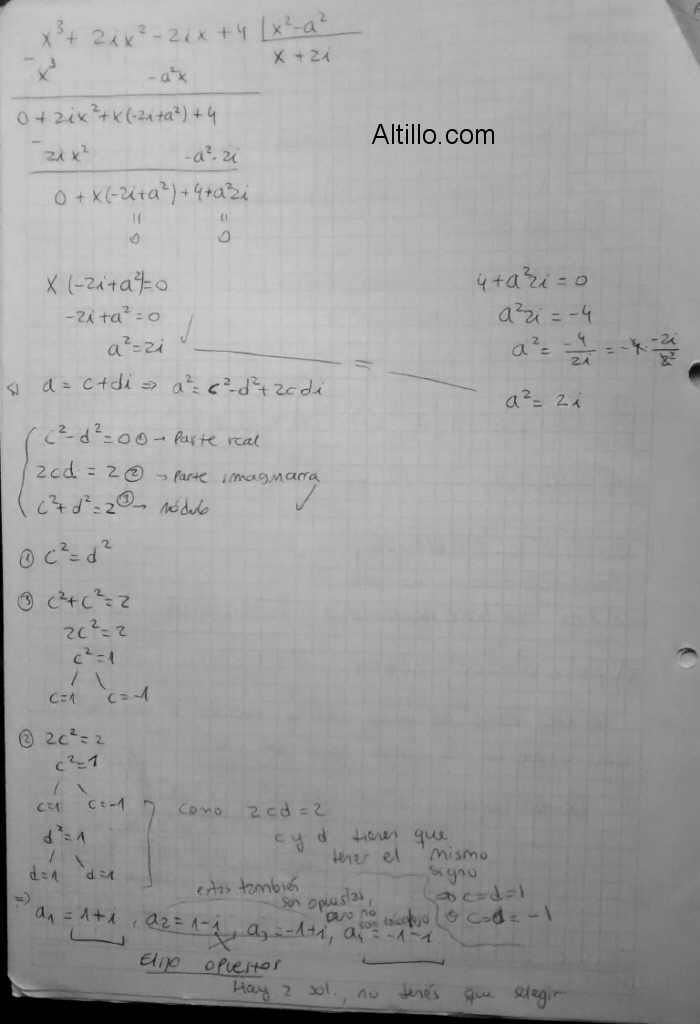 x³ + 2ix² - 2ix + 4 | x² - a²
- x³ -a²x x + 2i
0 + 2ix² + x(-2i+a²) + 4
Altillo.com
- 2ix² -a²·2i
0 + x(-2i+a²) + 4+a²2i
= =
0 0
x(-2i+a²)=0
-2i+a²=0
a²=2i
4+a²2i=0
a²2i=-4
a²= -4/2i = -4·-2i/2²
a²= 2i
=
Si a = c+di ⇒ a²= c²-d²+2cdi
c²-d²=0 ① → Parte real
2cd = 2 ② → Parte imaginaria
c²+d²=2 ③ → módulo
① c²=d²
③ c²+c²=2
2c²=2
c²=1
c=1 c=-1
② 2c²=2
c²=1
c=1 c=-1
d²=1
d=1 d=1
como 2cd=2
c y d tienen que
tener el mismo
signo
⇒ c=d=1
o c=d=-1
estas también
son opuestas,
pero no
son
⇒ a₁=1+i, a₂=1-i, a₃=-1+i, a₄=-1-i
Elijo opuestos
Hay 2 sol., no tenés que elegir